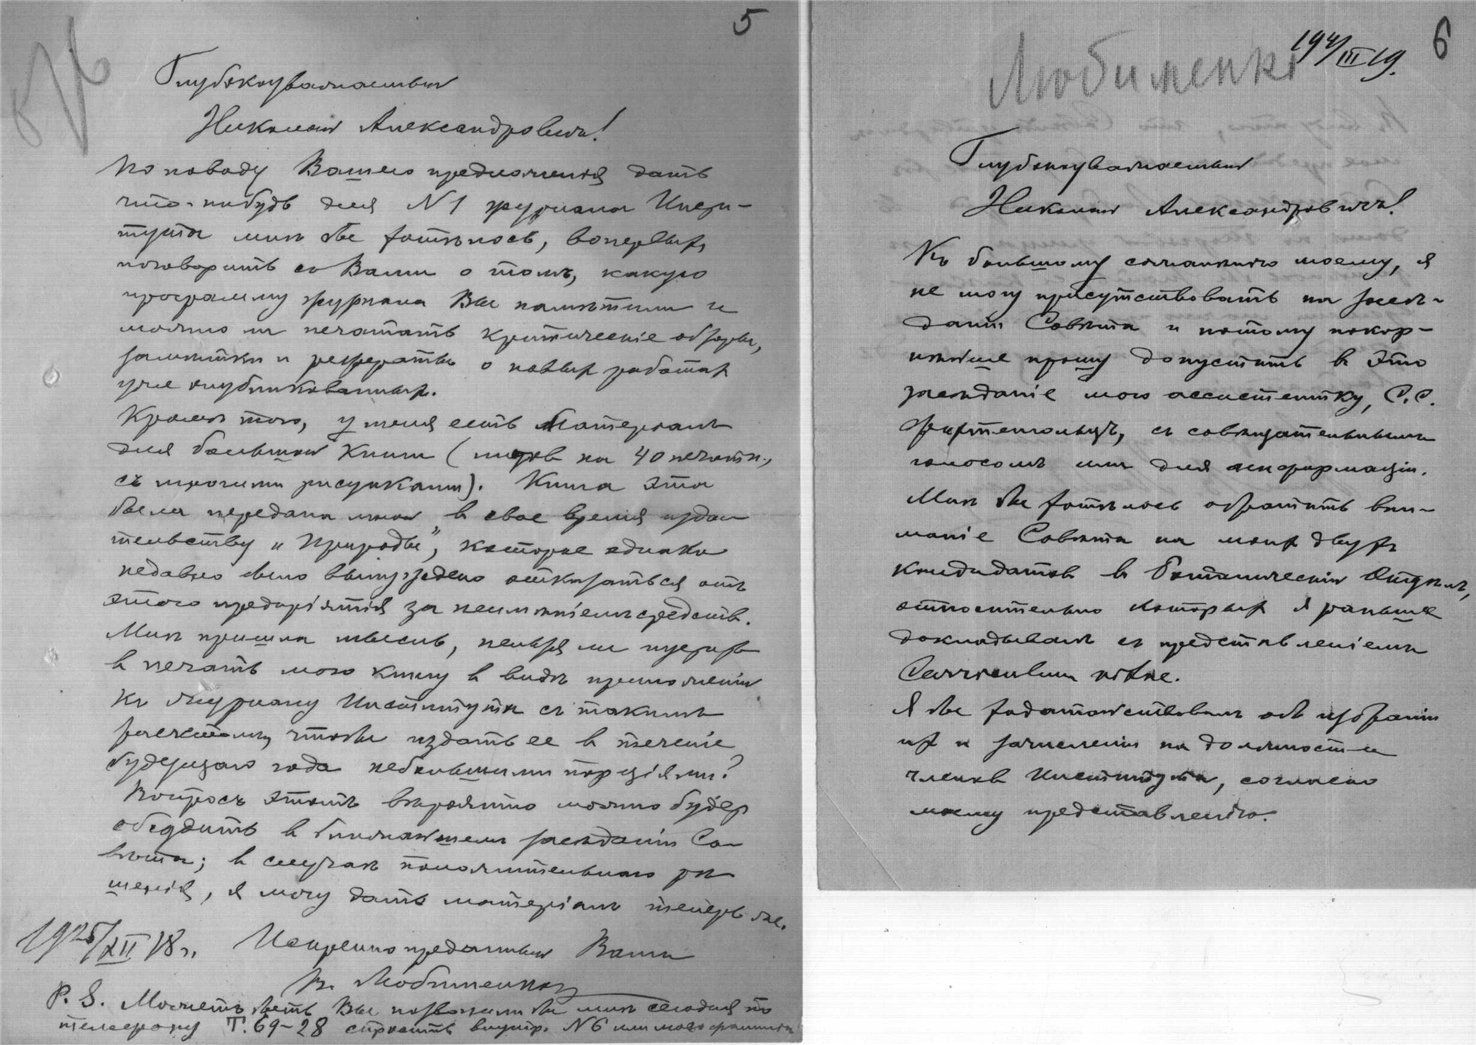 5
Глубокоуважаемый
Николай Александровичъ!
По поводу Вашего предложенія дать
что-нибудь для N1 журнала Инсти-
тута мнѣ бы хотѣлось, вопервыхъ,
поговорить съ Вами о томъ, какую
программу журнала Вы намѣтили и
можно ли печатать критическіе обзоры,
замѣтки и рефераты о новыхъ работах
уже опубликованных.
Кромѣ того, у меня есть матеріалъ
для большой книги (листовъ на 40 печатн.,
съ многими рисунками). Книга эта
была передана мной в свое время изда-
тельству „Природы", которое однако
недавно было вынуждено отказаться отъ
этого предпріятія за неимѣніемъ средствъ.
Мнѣ пришла мысль, нельзя ли пустить
в печать мою книгу в видѣ приложенія
къ Журналу Института съ такимъ
расчетомъ, чтобы издать ее в теченіе
будущаго года небольшими порціями?
Вопросъ этотъ вѣроятно можно будет
обсудить в ближайшемъ засѣданіи Со-
вѣта; в случаѣ положительнаго рѣ-
шенія, я могу дать матеріалъ теперь же.
1925/XII 18 г. Искренно преданный Вамъ
В. Любименко
P. S. Можетъ быть Вы позвонили бы мнѣ сегодня по
телефону Т. 69-28 спросить внутр. N6 или мою фамилію
6
Любименко
III 19.
Глубокоуважаемый
Николай Александровичъ!
Къ большому сожалѣнію моему, я
не могу присутствовать на засѣ-
даніи Совѣта и потому покор-
нѣйше прошу допустить в это
засѣданіе мою ассистентку, С.С.
съ совѣщательнымъ
голосомъ или для информаціи.
Мнѣ бы хотѣлось обратить вни-
маніе Совѣта на моих двухъ
кандидатов в Ботаническій Отдѣлъ,
относительно которых я раньше
докладывалъ съ представленіемъ
Я бы ходатайствовалъ объ избраніи
их и зачисленіи на должности
членов Института, согласно
моему представленію.